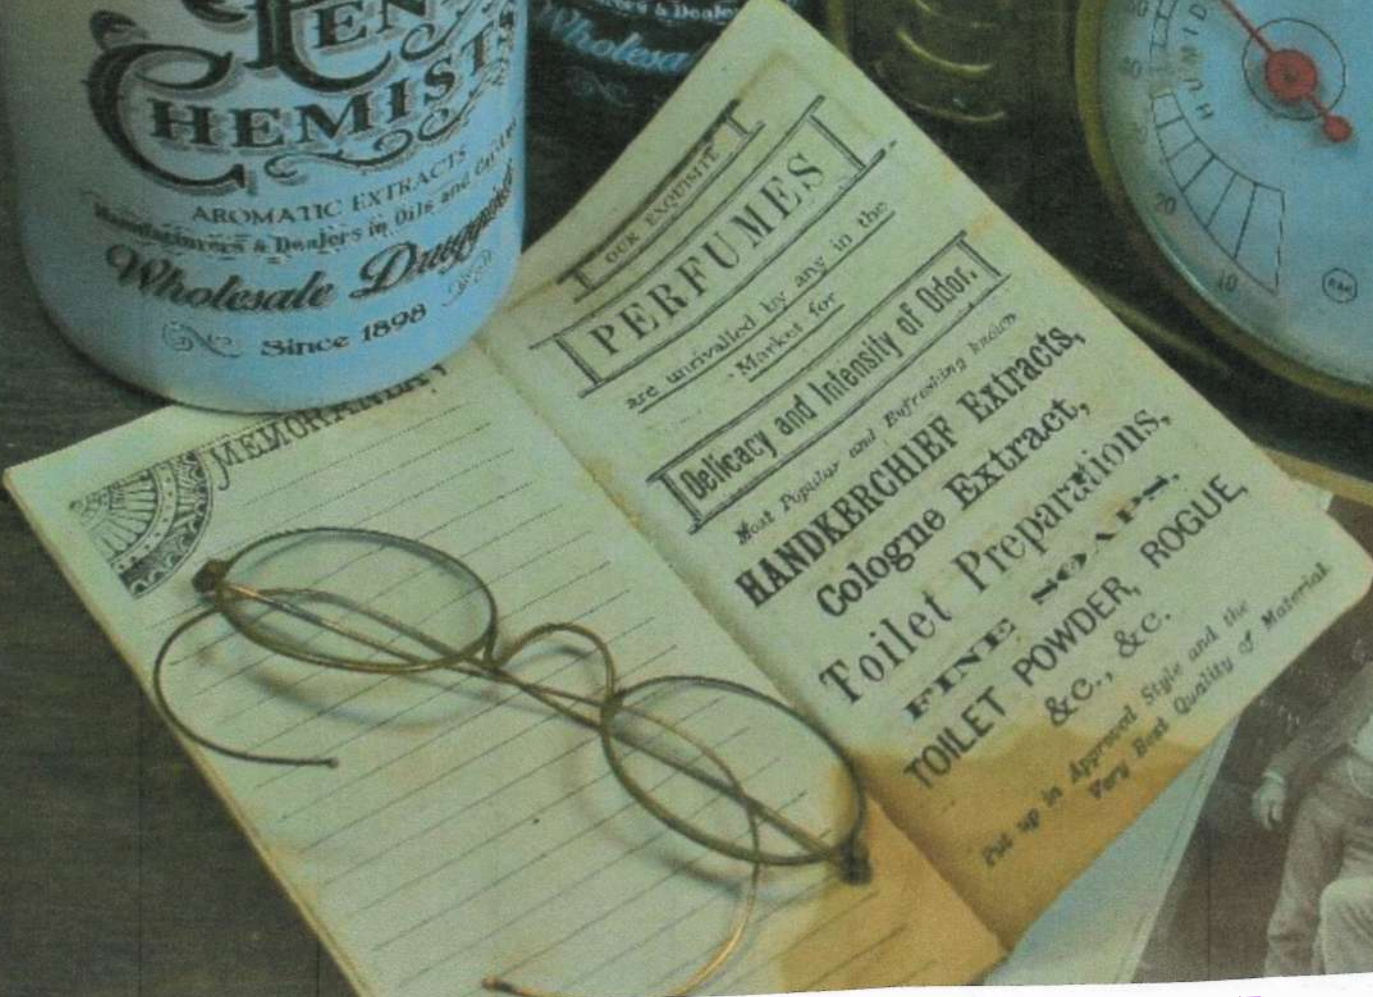 CHEMIST
AROMATIC EXTRACTS
Manufacturers & Dealers in Oils and
Wholesale Druggists
Since 1898
& Dealers
Wholesa
MEMORANDA
OUR EXQUISITE
PERFUMES
are unrivalled by any in the
Market for
Delicacy and Intensity of Odor.
Most Popular and Refreshing known
HANDKERCHIEF Extracts,
Cologne Extract,
Toilet Preparations,
FINE SOAPS.
TOILET POWDER, ROGUE,
&c., &c.
Put up in Approved Style and the
Very Best Quality of Material
HUMID
20
10